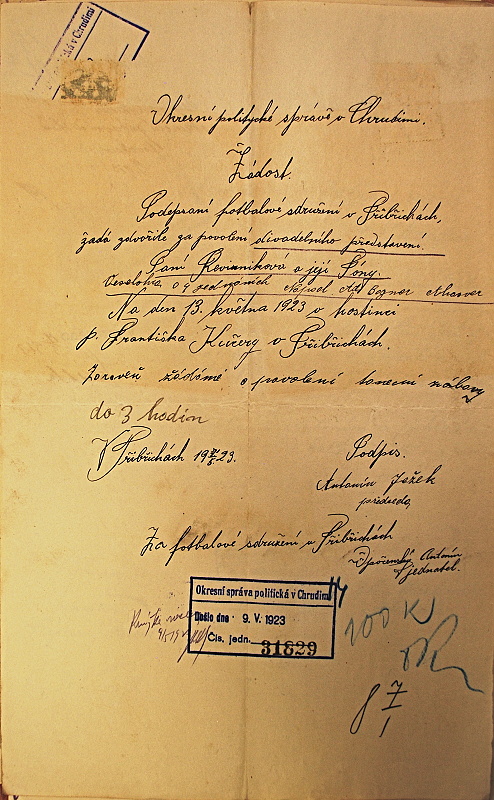 ká v Chrudimi
Okresní politycké správě v Chrudimi.
Žádost.
Podepsaní fotbalové sdružení v Přibřichách,
žadá zdvořile za povolení divadelního představení.
Paní a její
Veselohra o 4 jednáních Napsal
Na den 13. května 1923 v hostinci
p. Františka Kučery v Přibřichách.
Zároveň žádáme o povolení tanecní zábavy
do 3 hodin
V Přibřichách 19 23.
Podpis.
Antonín Ježek
předseda,
Za fotbalové sdružení v Přibřichách
Antonín
jednatel.
Okresní správa politická v Chrudimi
Došlo dne 9. V. 1923
Čís. jedn. 31829
100 K